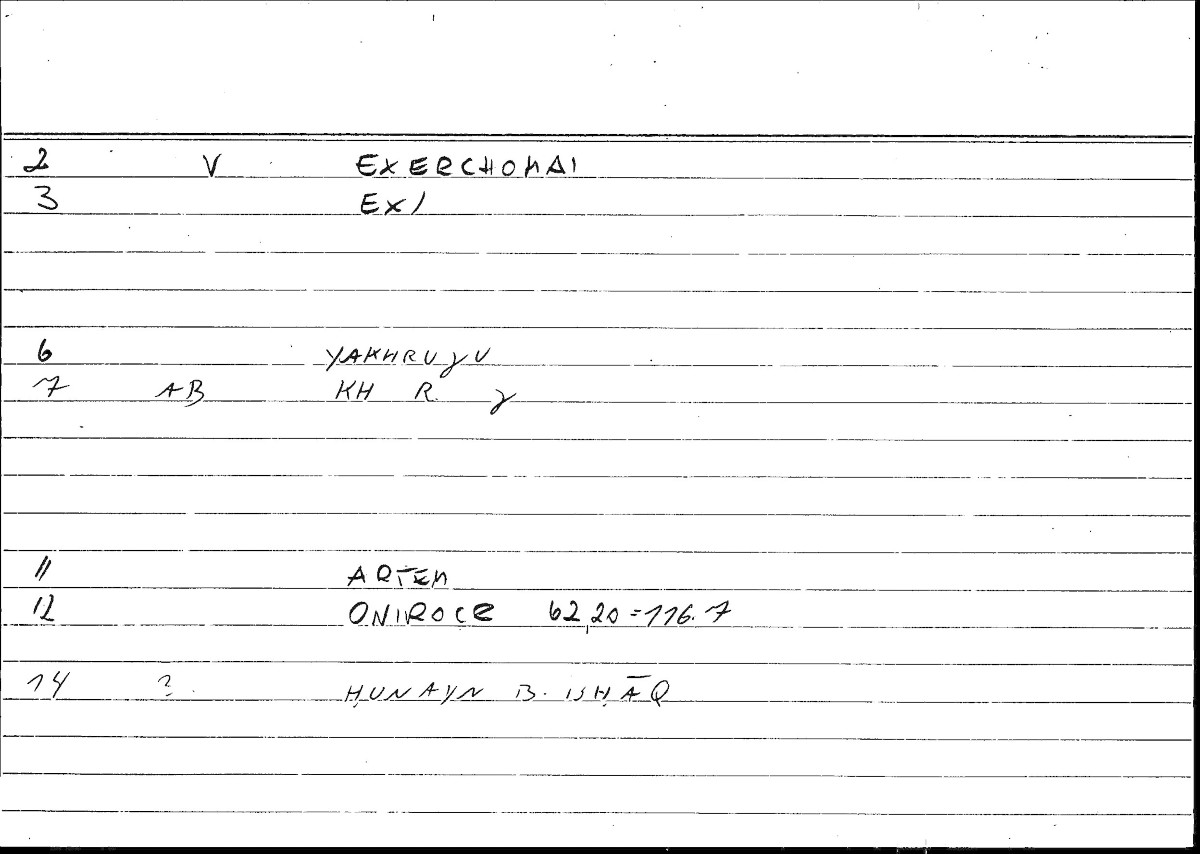 2 V EXERCHOMAI
3 EXI
6 YAKHRUǧU
7 AB KH R ǧ
11 ARTEM
12 ONIROCR 62,20=116.7
14 ? ḤUNAYN B. ISḤĀQ